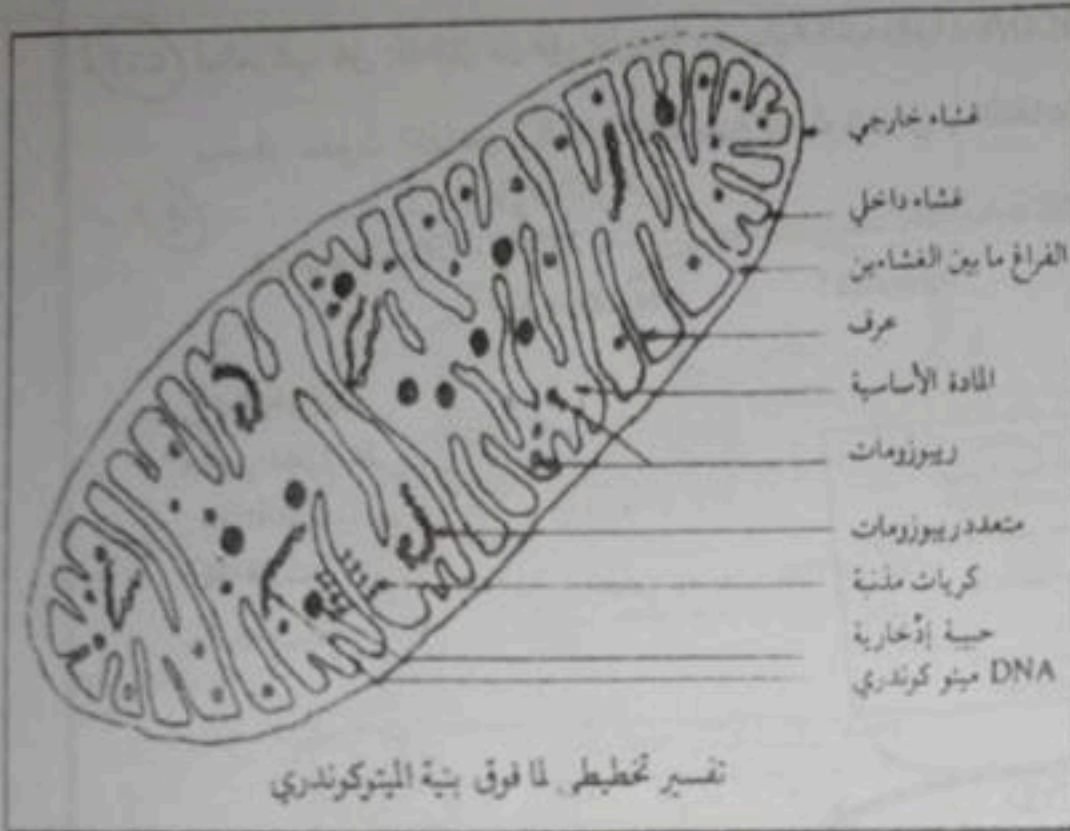 غشاء خارجي
غشاء داخلي
الفراغ ما بين الغشاءين
عرف
المادة الأساسية
ريبوزومات
متعدد ريبوزومات
كريات مذنبة
حبيبة إدّخارية
DNA ميتوكوندري
تفسير تخطيطي لما فوق بنية الميتوكوندري